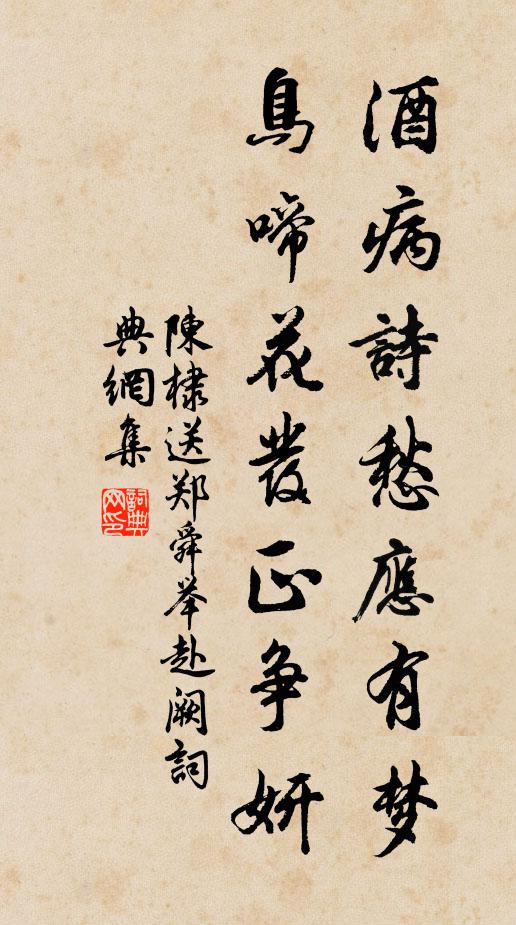 酒病詩愁應有梦
鳥啼花發正争妍
陳棣送郑舜举赴阙詞
典網集
詞典网印